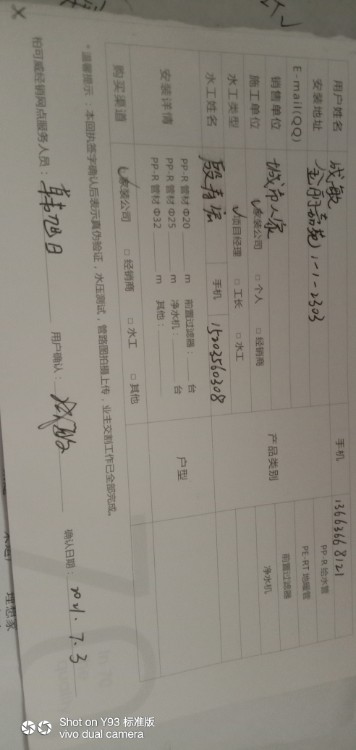 用户姓名 成敏 手机 13663668121
安装地址 1-1-2303 PP-R 给水管
E-mail(QQ) PE-RT 地暖管
销售单位 城市人家 产品类别 前置过滤器
施工单位 家装公司 □ 个人 □ 经销商 净水机
水工类型 项目经理 □ 工长 □ 水工
水工姓名 手机 15203560308
安装详情 PP-R 管材 Φ20 m 前置过滤器: 台 户型
PP-R 管材 Φ25 m 净水机: 台
PP-R 管材 Φ32 m 其他:
购买渠道 家装公司 □ 经销商 □ 水工 □ 其他
*温馨提示:本回执签字确认后表示真伪验证,水压测试,管路图拍摄上传,业主交割工作已全部完成。
柏可威经销网点服务人员: 韩旭日 用户确认: 成敏 确认日期: 2021.7.3
理想家
Shot on Y93 标准版
vivo dual camera